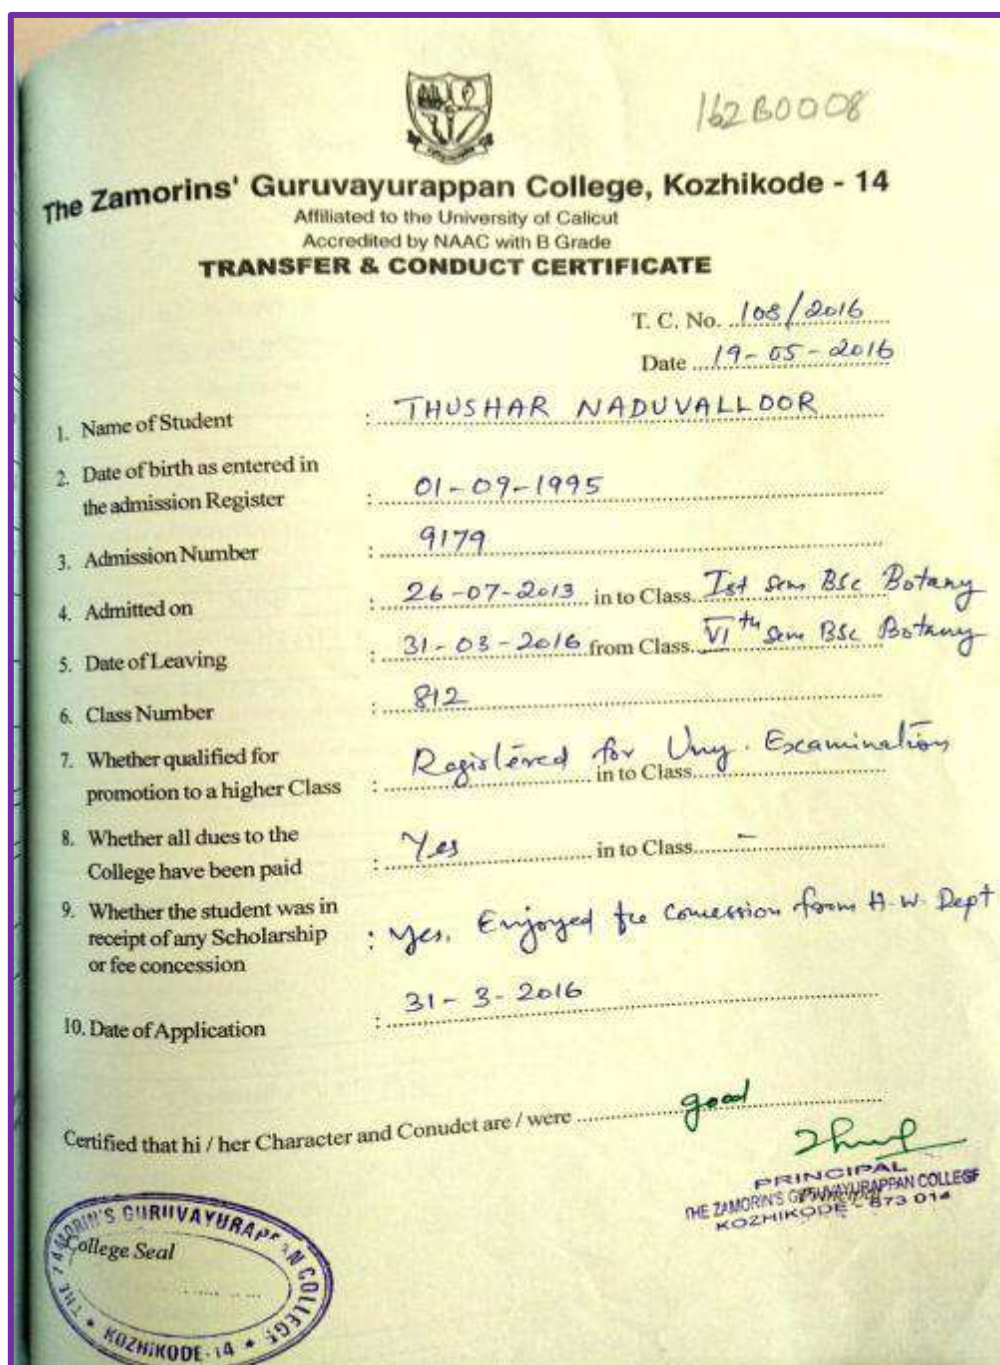 162B0008
The Zamorins' Guruvayurappan College, Kozhikode - 14
Affiliated to the University of Calicut
Accredited by NAAC with B Grade
TRANSFER & CONDUCT CERTIFICATE
T. C. No. 108/2016
Date 19-05-2016
1. Name of Student : THUSHAR NADUVALLOOR
2. Date of birth as entered in
the admission Register : 01-09-1995
3. Admission Number : 9179
4. Admitted on : 26-07-2013 in to Class Ist Sem BSc Botany
5. Date of Leaving : 31-03-2016 from Class VIth Sem BSc Botany
6. Class Number : 812
7. Whether qualified for
promotion to a higher Class : Registered for Uny. Examination in to Class
8. Whether all dues to the
College have been paid : Yes in to Class -
9. Whether the student was in
receipt of any Scholarship : Yes. Enjoyed fee concession from H.W. Dept
or fee concession
10. Date of Application : 31-3-2016
Certified that hi / her Character and Conudct are / were good
PRINCIPAL
Principal
THE ZAMORIN'S GURUVAYURAPPAN COLLEGE
KOZHIKODE - 673 014
College Seal
THE ZAMORIN'S GURUVAYURAPPAN COLLEGE
KOZHIKODE-14